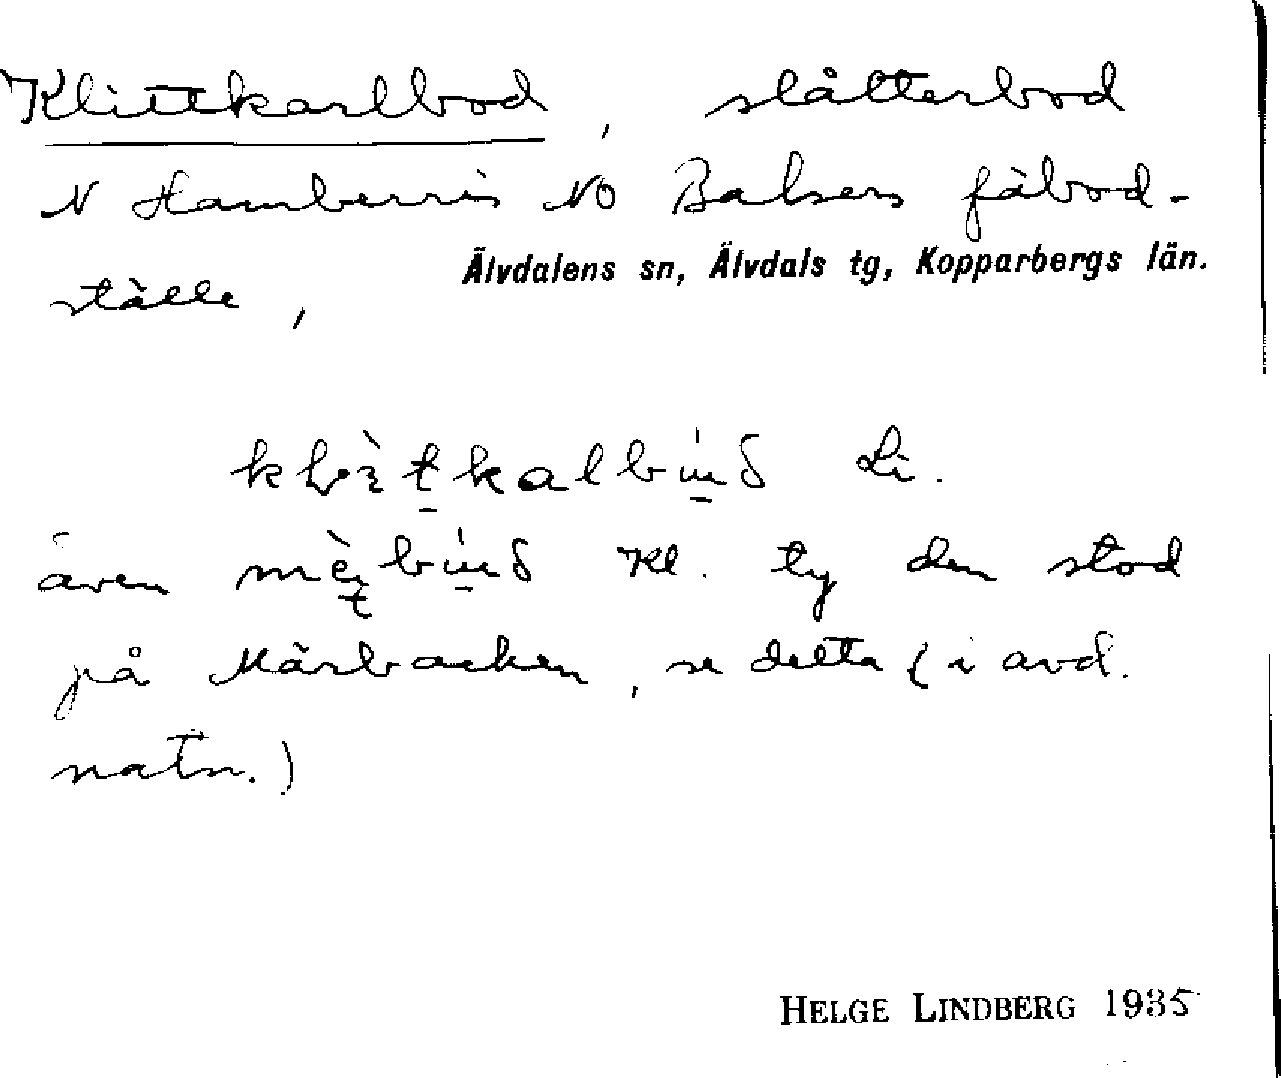 Klittkarlbod, slåtterbod
N Hamberris NO Balsers fäbod-
Älvdalens sn, Älvdals tg, Kopparbergs län.
ställe,
Li.
även Kl. ty den stod
på Märbacken, se detta (i avd.
natn.)
HELGE LINDBERG 1935